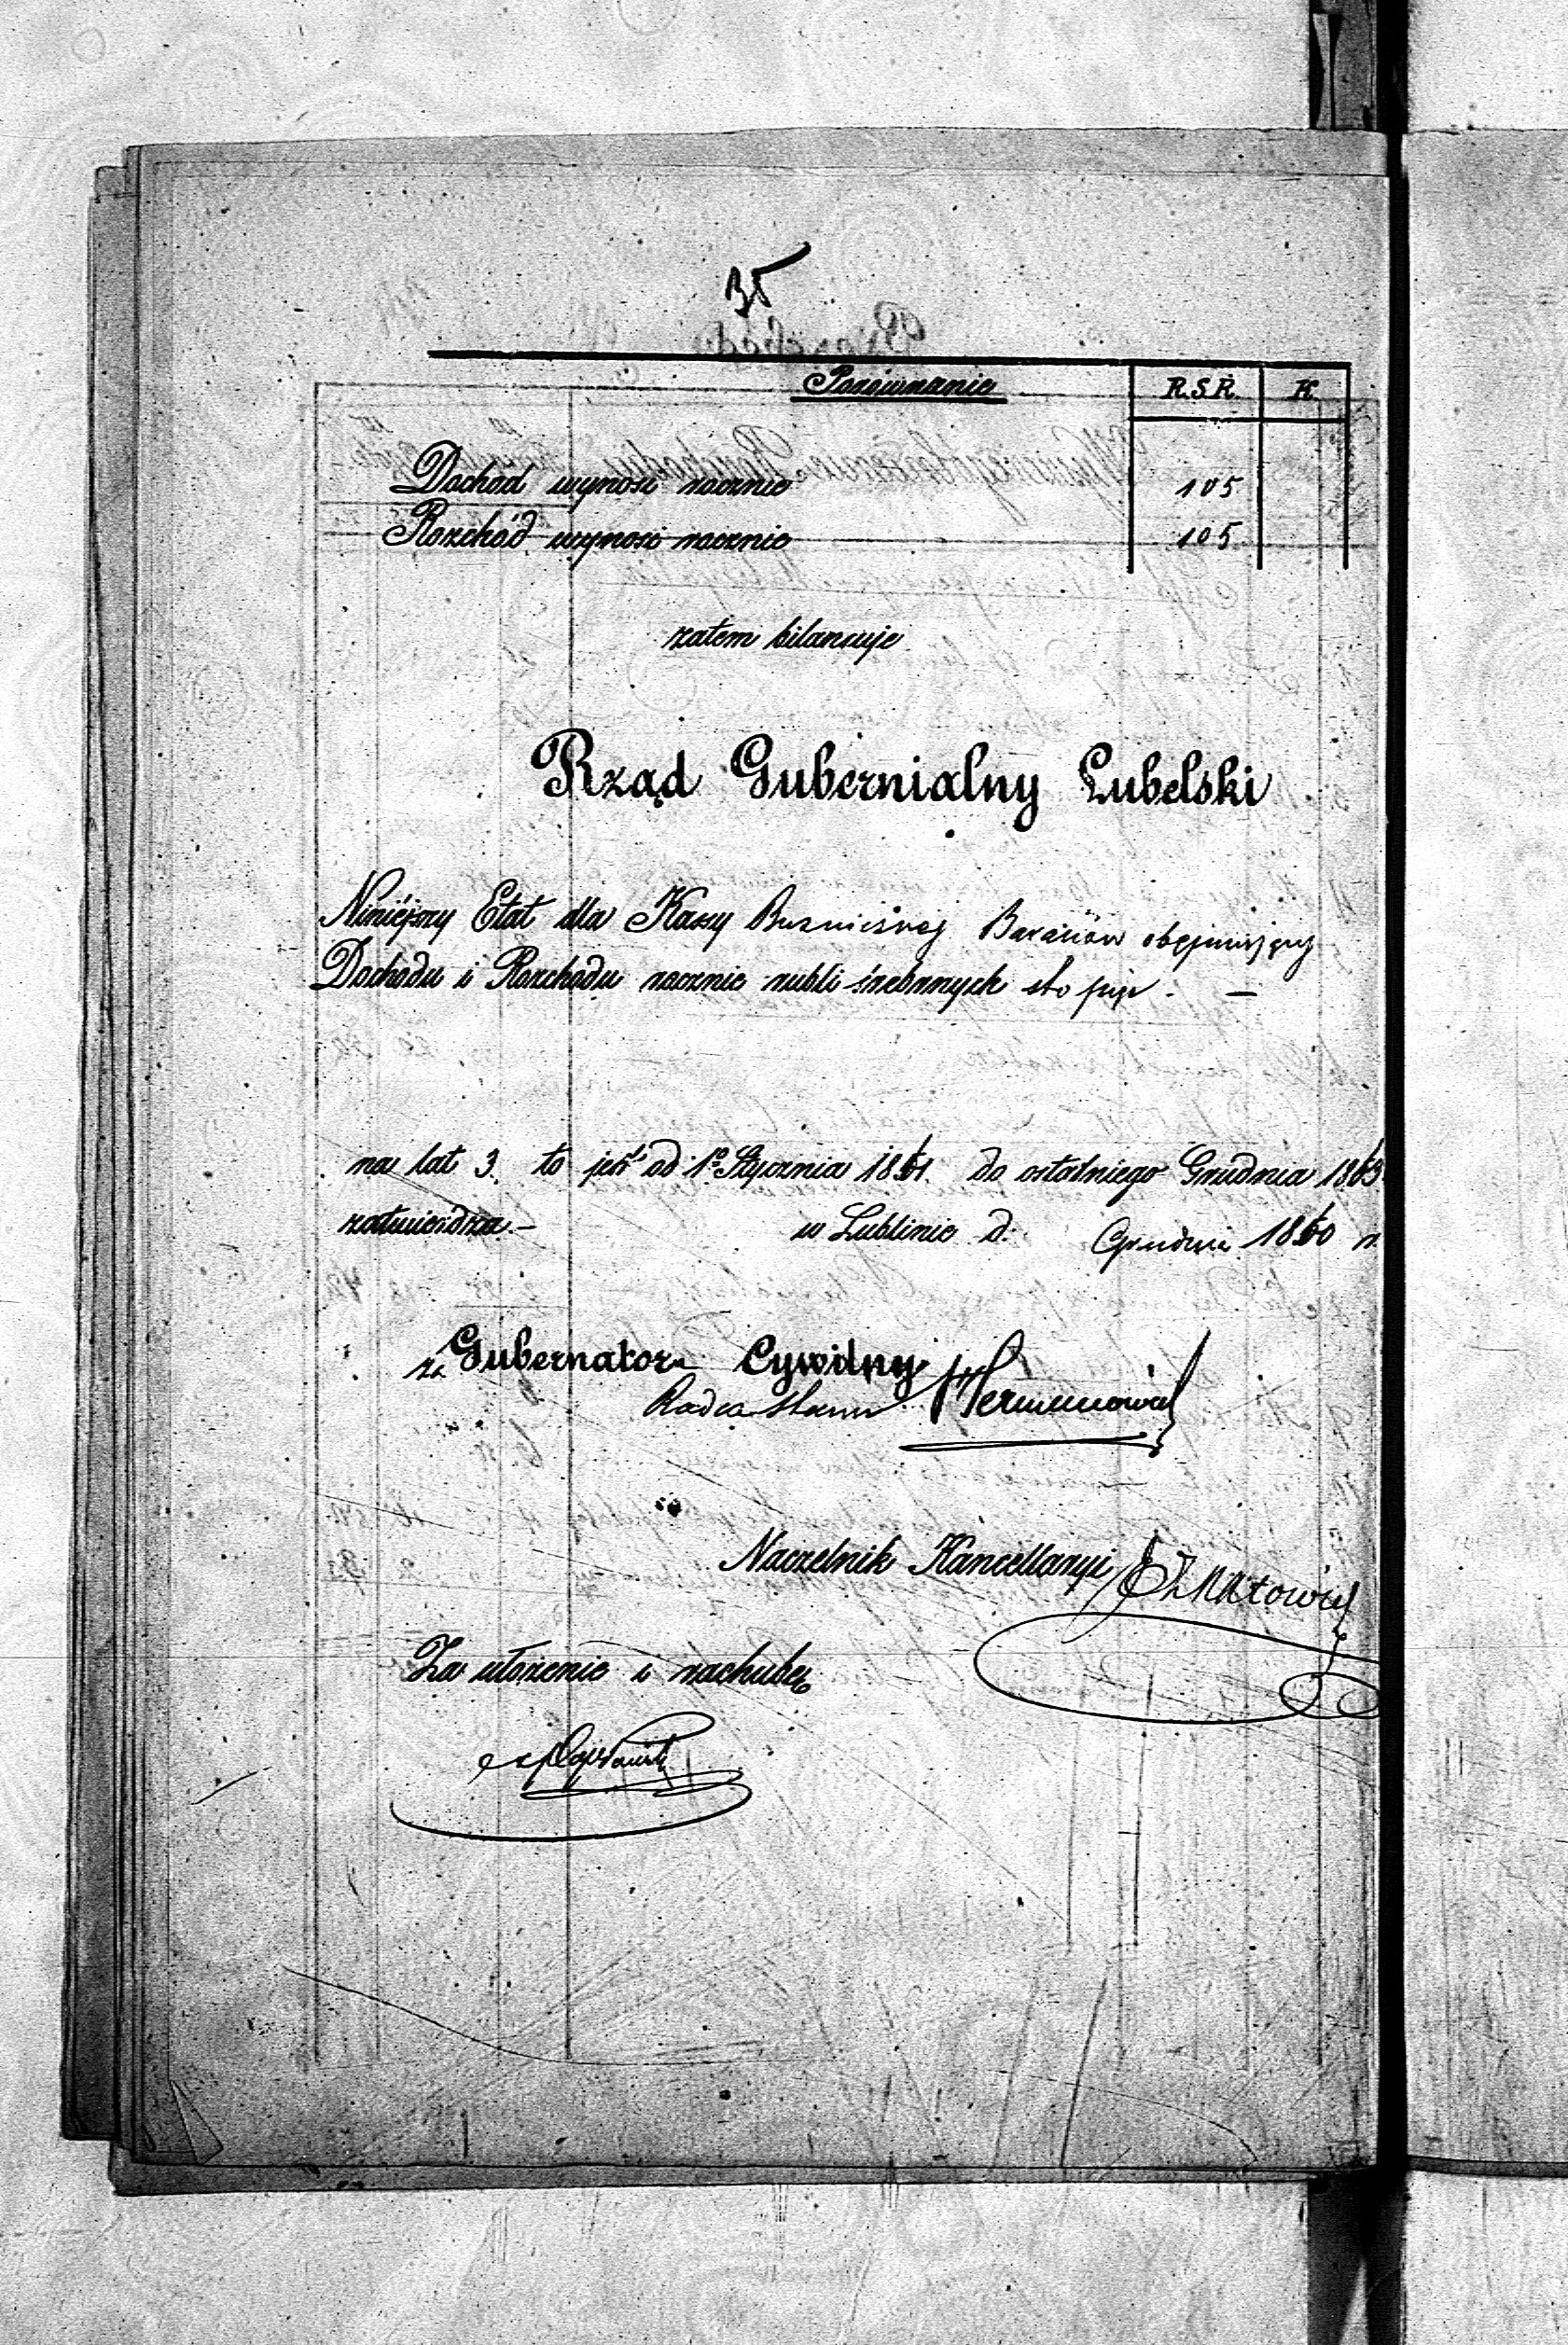 35
Porównanie R.S.R. K.
Dochód wynosi rocznie 105
Rozchód wynosi rocznie 105
zatem bilansuje
Rząd Gubernialny Lubelski
Niniéjszy Etat dla Kassy Bużniczéj Baranów obejmujący
Dochodu i Rozchodu rocznie rubli śrebrnych sto pięć. —
na lat 3. to jest od 1º Stycznia 1861. do ostatniego Grudnia 1863
zatwierdza. — w Lublinie d. Grudnia 1860 r.
za Gubernatora Cywilny
Radca Stanu
Naczelnik Kancellaryi
Za ułożenie i rachubę